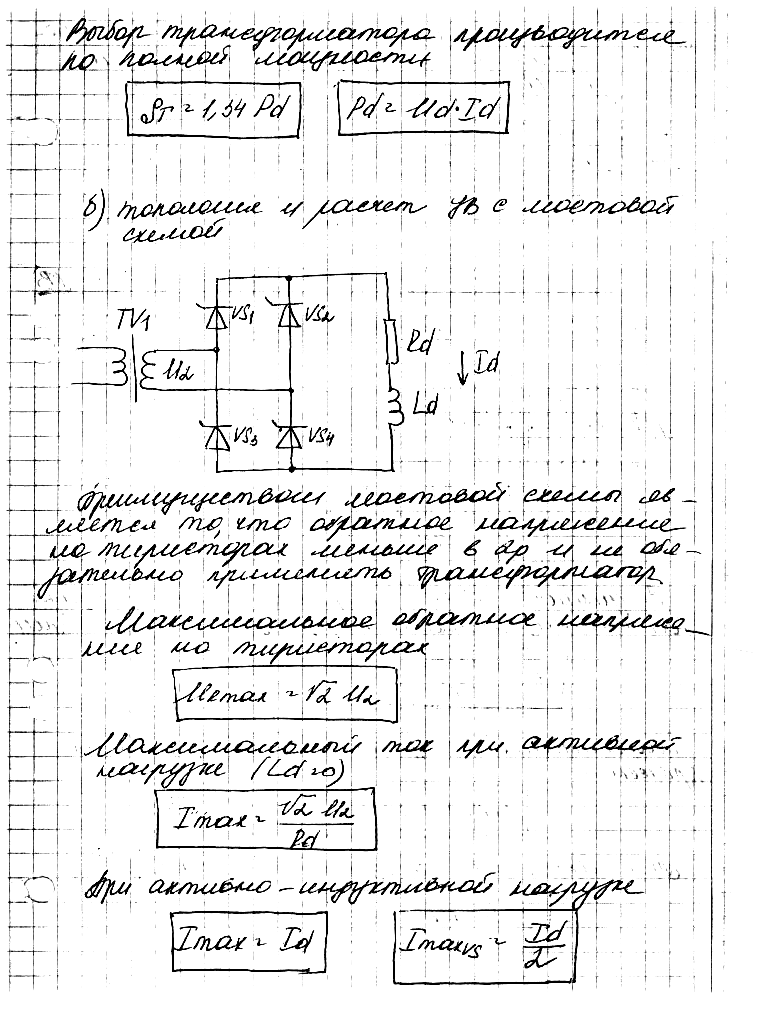 Выбор трансформатора производится
по полной мощности
Sт = 1,34 Pd
Pd = Ud·Id
б) топология и расчет УВ с мостовой
схемой
TV1
VS1
VS2
U2
Rd
Id
Ld
VS3
VS4
Преимуществом мостовой схемы яв-
ляется то, что обратное напряжение
на тиристорах меньше в 2р и не обя-
зательно применять трансформатор
Максимальное обратное напряже-
ние на тиристорах
Uвmax = √2 U2
Максимальный ток при активной
нагрузке (Ld=0)
Imax = √2 U2 / Rd
При активно-индуктивной нагрузке
Imax = Id
ImaxVS = Id / 2